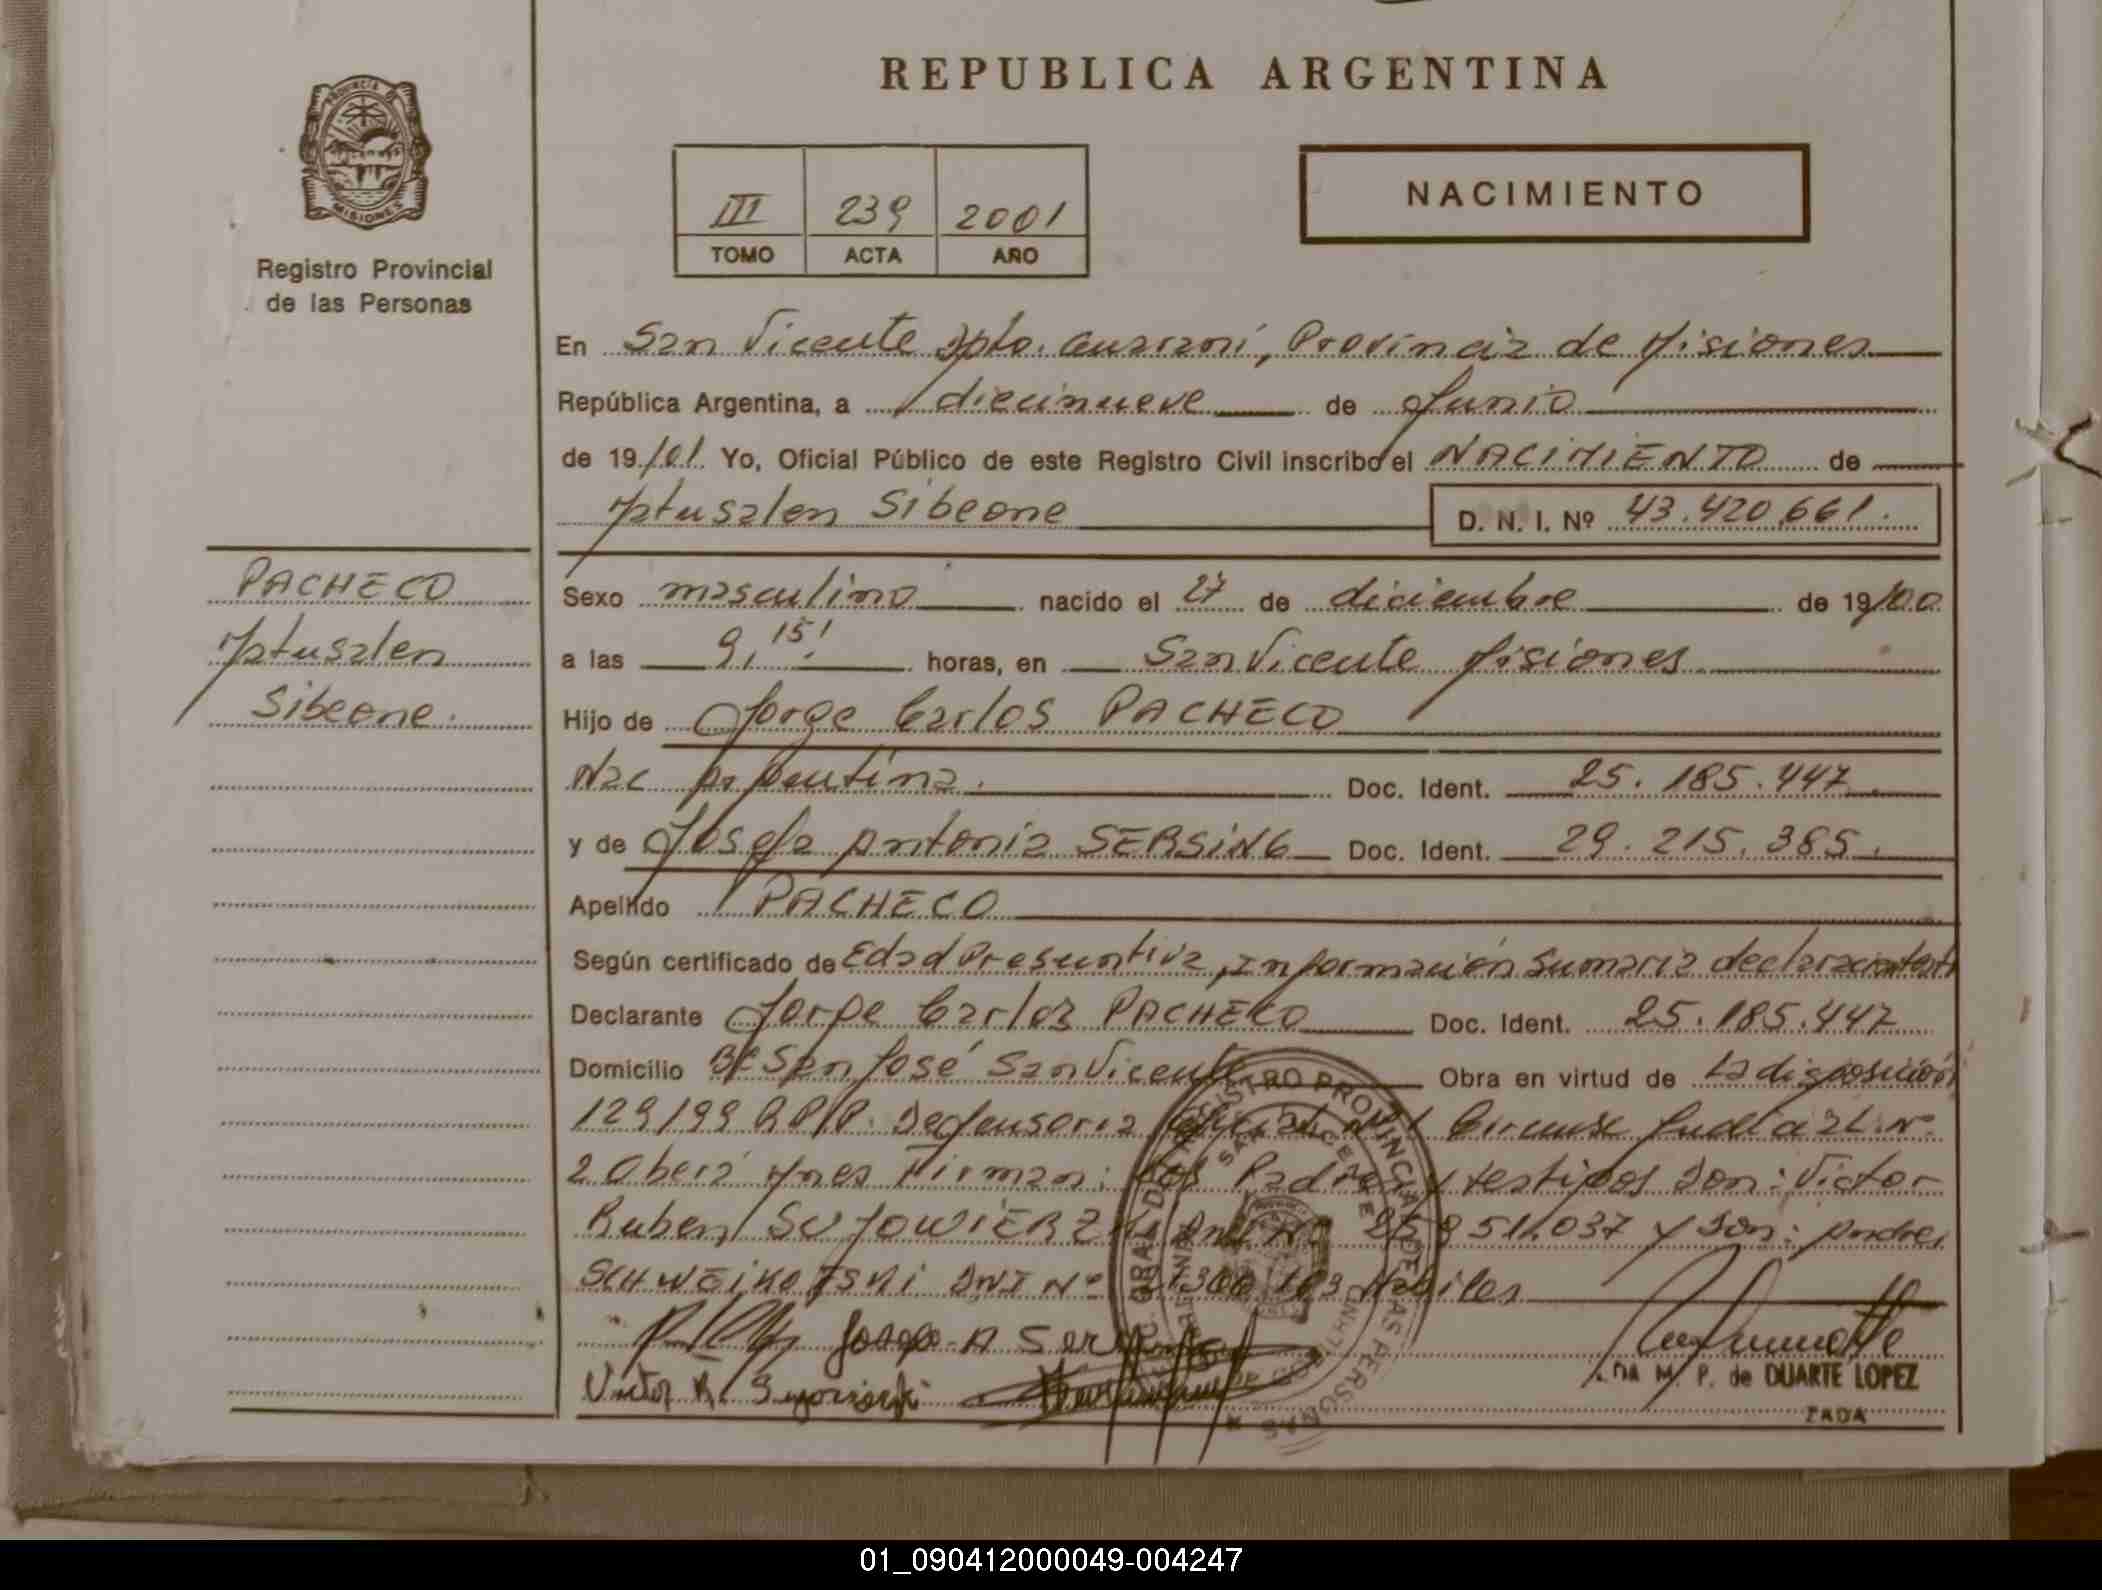 REPUBLICA ARGENTINA
PROVINCIA DE
MISIONES
Registro Provincial
de las Personas
III 239 2001
TOMO ACTA AÑO
NACIMIENTO
En San Vicente Dpto. Guaraní, Provincia de Misiones
República Argentina, a diecinueve de Junio
de 19/01. Yo, Oficial Público de este Registro Civil inscribo el NACIMIENTO de
Matusalen Sibeone D. N. I. Nº 43.420.661.
PACHECO
Matusalen
Sibeone.
Sexo masculino nacido el 27 de diciembre de 19/00
a las 9,15! horas, en San Vicente Misiones
Hijo de Jorge Carlos PACHECO
Nac Argentina. Doc. Ident. 25.185.447.
y de Josefa Antonia SERSING Doc. Ident. 29.215.385.
Apellido PACHECO
Según certificado de Edad Presuntiva, Información Sumaria
Declarante Jorge Carlos PACHECO Doc. Ident. 25.185.447
Domicilio Bº San José San Vicente Obra en virtud de La disposición
129/99 R.P.P. Defensoria Nº 1 Circunsc Judicial Nº
2 Oberá Mnes Firman: los Padres y testigos Don: Victor
Ruben 037 y Don: Andres
DNI Nº Habiles
Victor R.
M. P. de DUARTE LOPEZ
REGISTRO PROVINCIAL DE LAS PERSONAS
SAN VICENTE
01_090412000049-004247